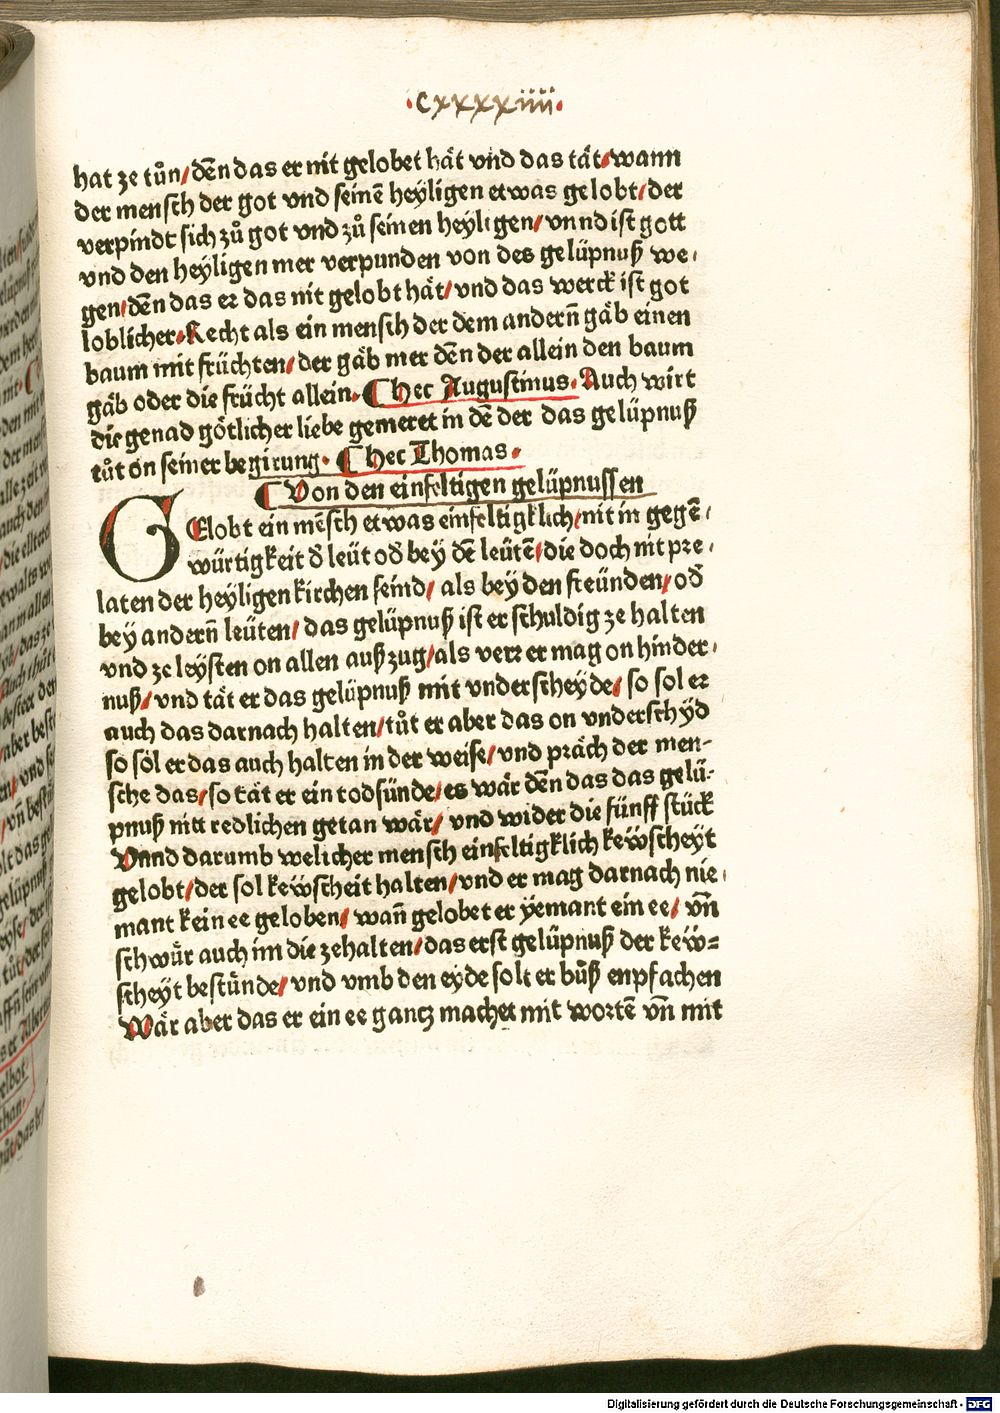 ·cxxxxiiii·
hat ze tůn/ dēn das er nit gelobet hät vnd das tät/ wann
der mensch der got vnd seinē heyligen etwas gelobt/ der
verpindt sich zů got vnd zů seinen heyligen/ vnnd ist gott
vnd den heyligen mer verpunden von des gelüpnuß we-
gen/ dēn das er das nit gelobt hät/ vnd das werck ist got
loblicher. Recht als ein mensch der dem andern̄ gäb einen
baum mit früchten/ der gäb mer dēn der allein den baum
gäb oder die frücht allein. ¶ hec Augustinus. Auch wirt
die genad götlicher liebe gemeret in dē der das gelüpnuß
tůt on seiner begirung. ¶ hec Thomas.
¶ Von den einfeltigen gelüpnussen
GElobt ein mēsch etwas einfeltigklich/ nit in gegē-
würtigkeit d̄ leüt od̄ bey dē leütē/ die doch nit pre-
laten der heyligen kirchen seind/ als bey den freünden/ od̄
bey andern̄ leüten/ das gelüpnuß ist er schuldig ze halten
vnd ze leysten on allen außzug/ als verr er mag on hinder-
nuß/ vnd tät er das gelüpnuß mit vnderscheyde/ so sol er
auch das darnach halten/ tůt er aber das on vnderschyd
so söl er das auch halten in der weise/ vnd präch der men-
sche das/ so tät er ein todsünde/ es wär dēn das das gelü-
pnuß nitt redlichen getan wär/ vnd wider die fünff stück
Vnnd darumb welicher mensch einfeltigklich keẅscheyt
gelobt/ der sol keẅscheit halten/ vnd er mag darnach nie-
mant kein ee geloben/ wan̄ gelobet er yemant ein ee/ vn̄
schwůr auch im die zehalten/ das erst gelüpnuß der keẅ-
scheyt bestünde/ vnd vmb den eyde solt er bůß enpfachen
Wär aber das er ein ee gantz machet mit wortē vn̄ mit
Digitalisierung gefördert durch die Deutsche Forschungsgemeinschaft - DFG